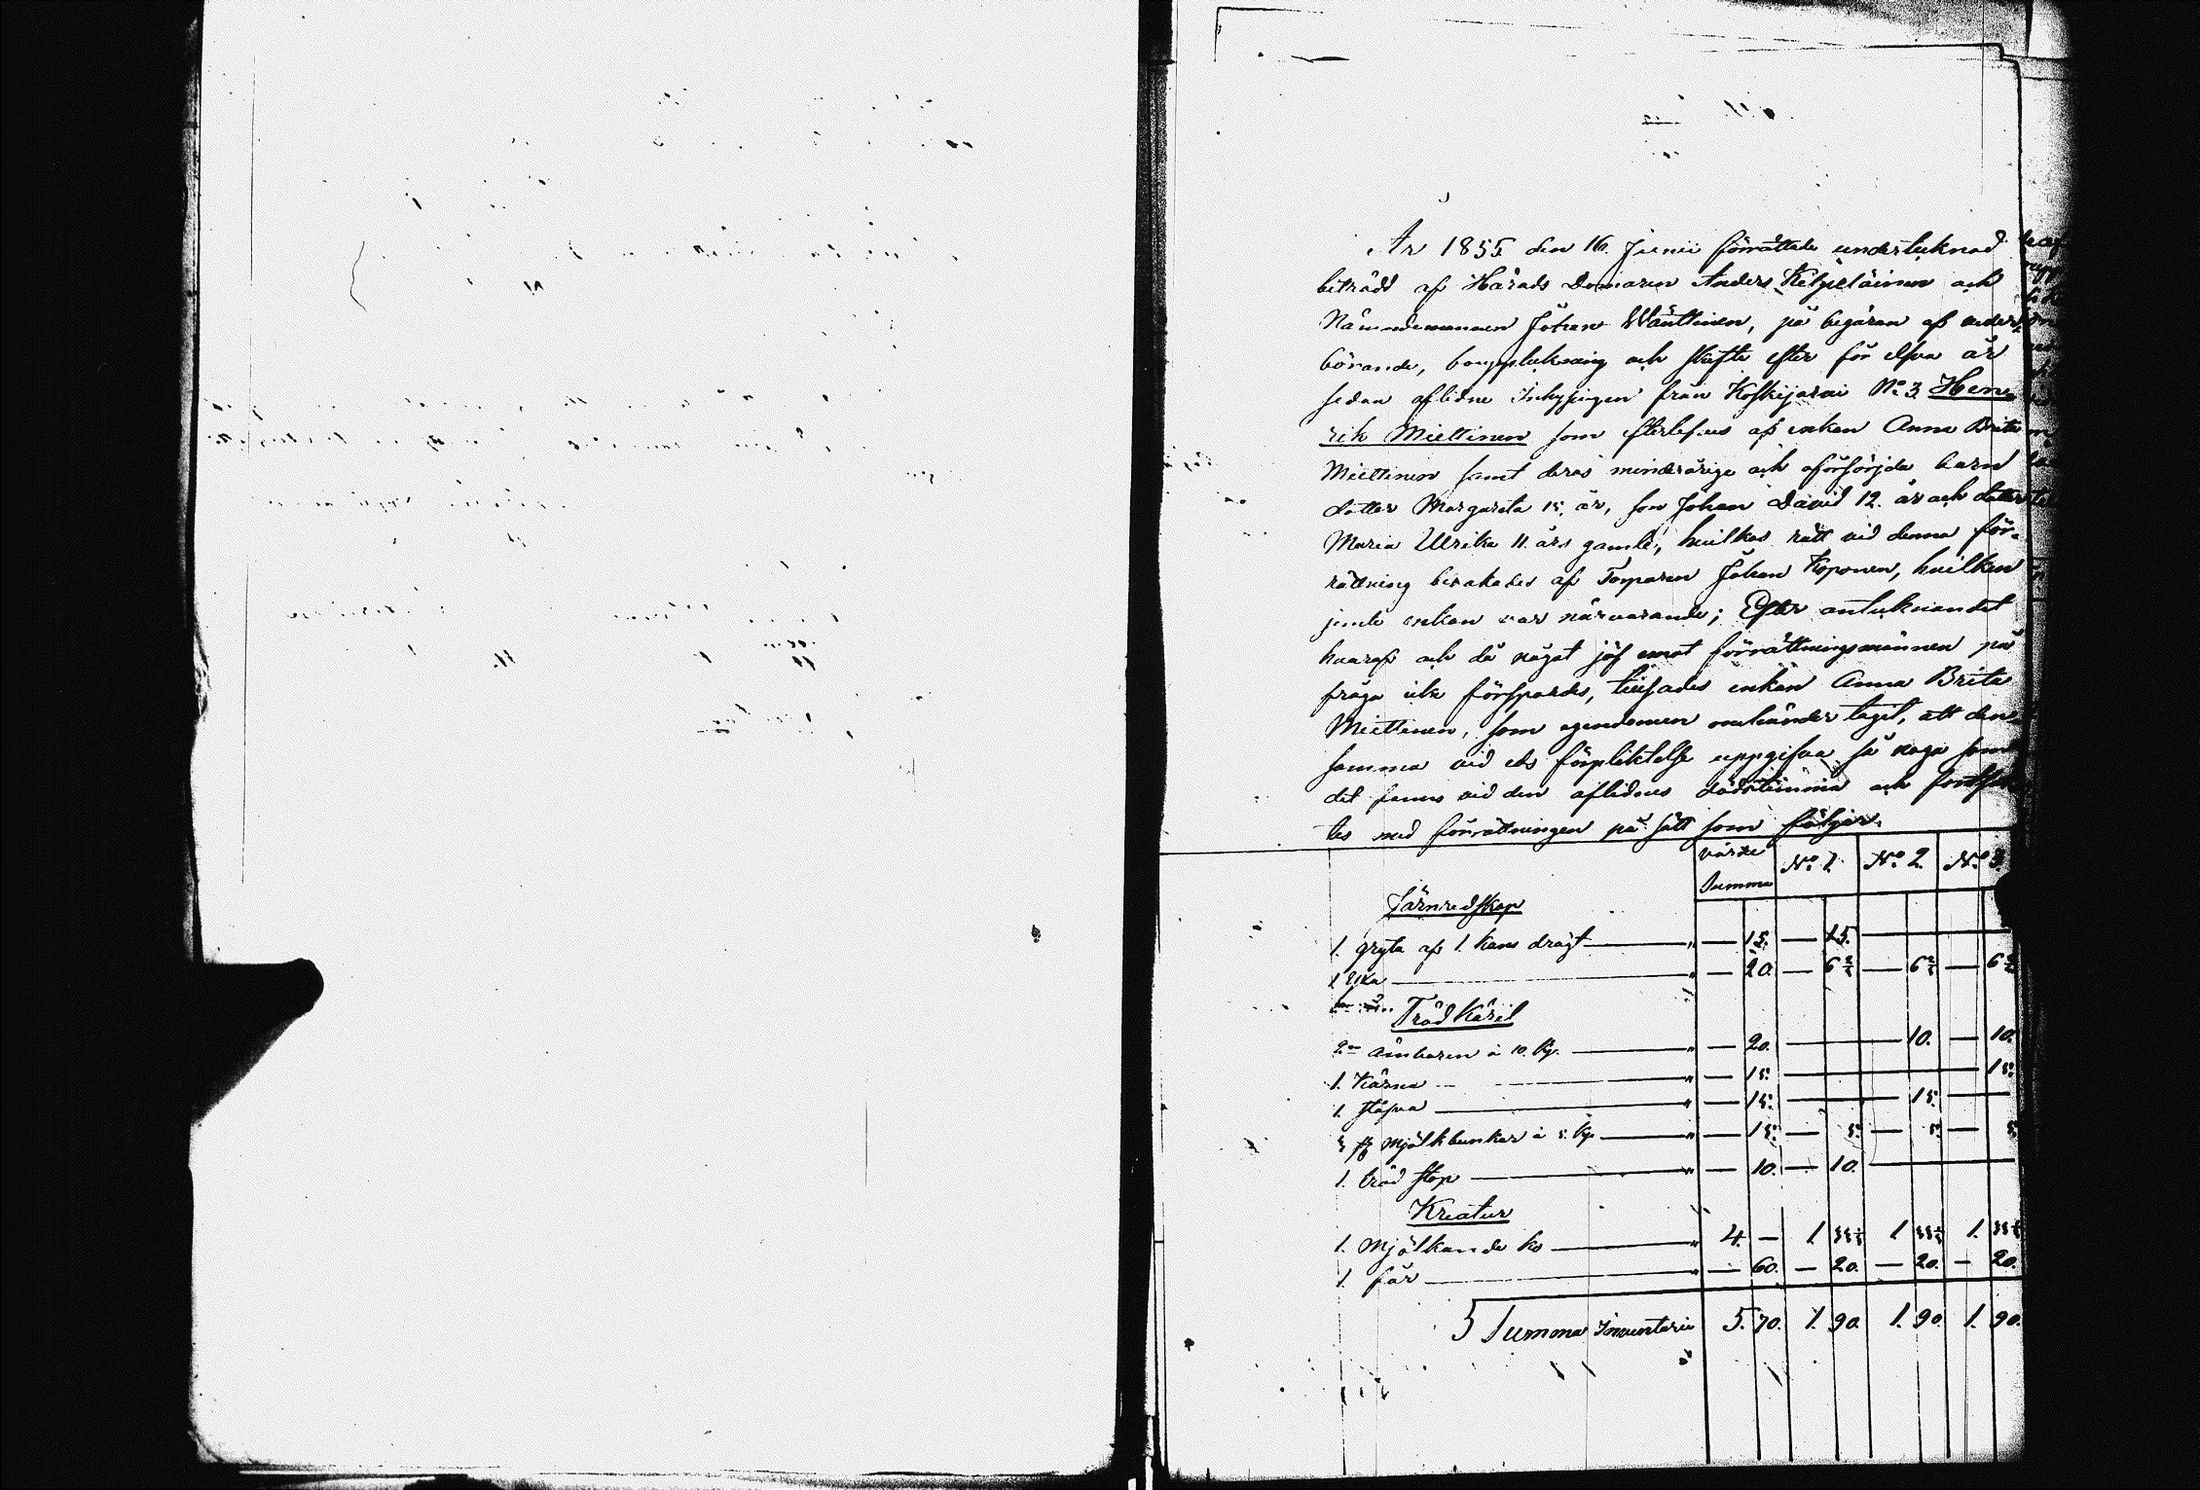 År 1855 den 16. Junii förrättade undertecknad
biträdd af Härads Domaren Anders Kilpeläinen och
Nämndemannen Johan Wänttinen, på begäran af veder-
börande, bouppteckning och skifte efter för elfva år
sedan aflidne Inhysingen från Koskijärvi No 3 Hen-
rik Miettinen som efterlefves af enkan Anna Brita
Miettinen samt deras minderårige och oförsörjda barn
dotter Margareta 15. år, son Johan David 12. år och dotter
Maria Ulrika 11. års gamle, hvilkas rätt vid denna för-
rättning bevakades af Torparen Johan Koponen, hvilken
jemte enkan var närvarande; Efter antecknandet
hvaraf och då något jäf emot förrättningsmännen på
fråga icke förspordes, tillsades enkan Anna Brita
Miettinen, som egendomen omhänder tagit, att den
samma vid eds förpliktelse uppgifva så noga som
det fanns vid den aflidnes dödstimma och fortsat
tes med förrättningen på sätt som följer.
värde Summa No 1. No 2. No 3.
Järnredskap
1. gryta af 1. kans drägt " — 15. — 15. —
1 — 20. — 6 2/3 — 6 2/3 — 6 2/3
Träd Käril
2 ämbaren à 10. kp. " — 20. — 10. — 10.
1. Kärna " — 15. — 15.
1. stäfva " — 15. — 15. —
3 st mjölkbunkar à 5. kp " — 15. — 5. — 5. — 5.
1. träd stop " — 10. — 10. —
Kreatur
1. mjölkande ko " 4. — 1. 33 1/3 1. 33 1/3 1. 33 1/3
1. får " — 60. — 20. — 20. — 20.
Summa Inventarii 5. 70. 1. 90. 1. 90. 1. 90.